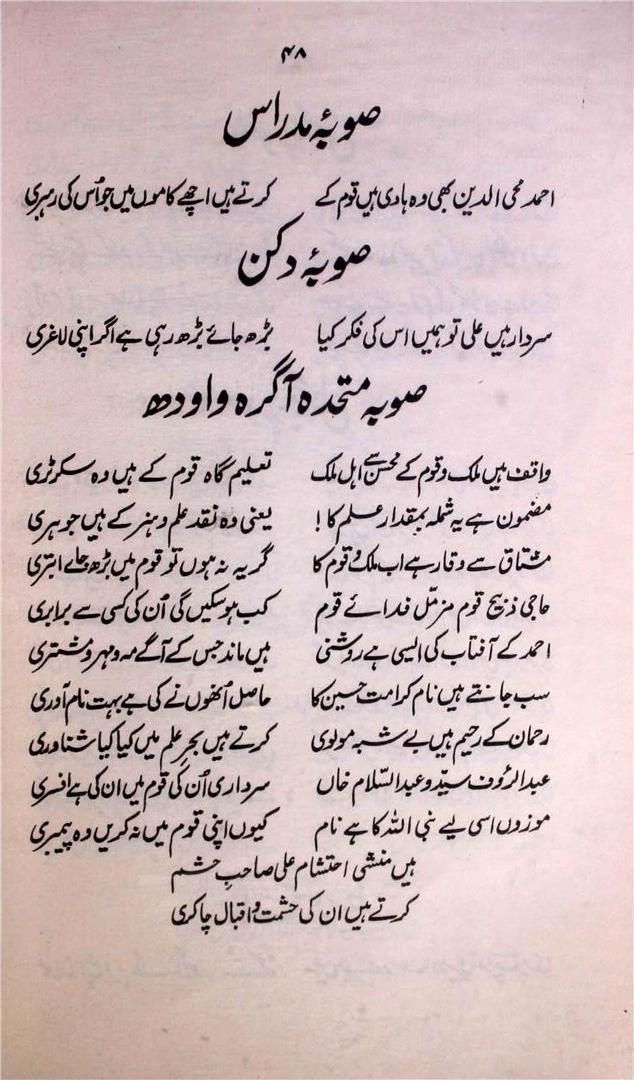 ۴۸
صوبۂ مدراس
احمد محی الدین بھی وہ ہادی ہیں قوم کے کرتے ہیں اچھے کاموں میں جو اُس کی رہبری
صوبۂ دکن
سردار ہیں علی تو ہمیں اس کی فکر کیا بڑھ جائے بڑھ رہی ہے اگر اپنی لاغری
صوبہ متحدہ آگرہ و اودھ
واقف ہیں ملک و قوم کے محسن سے اہل ملک تعلیم گاہ قوم کے ہیں وہ سکرٹری
مضمون ہے یہ شملہ بمقدار علم کا! یعنی وہ نقد علم و ہنر کے ہیں جوہری
مشتاق سے وقار ہے اب ملک و قوم کا گر یہ نہ ہوں تو قوم میں بڑھ جائے ابتری
حاجی ذبیح قوم مزمّل فدائے قوم کب ہو سکیں گی اُن کی کسی سے برابری
احمد کے آفتاب کی ایسی ہے روشنی ہیں ماند جس کے آگے مہ و مہر و مشتری
سب جانتے ہیں نام کرامت حسین کا حاصل اُنھوں نے کی ہے بہت نام آوری
رحمان کے رحیم ہیں بے شبہ مولوی کرتے ہیں بحرِ علم میں کیا کیا شناوری
عبد الرؤف سیّد و عبد السّلام خاں سرداری اُن کی قوم میں ان کی ہے افسری
موزوں اسی لیے نبی اللہ کا ہے نام کیوں اپنی قوم میں نہ کریں وہ پیمبری
ہیں منشی احتشام علی صاحبِ حشم
کرتے ہیں ان کی حشمت و اقبال چاکری